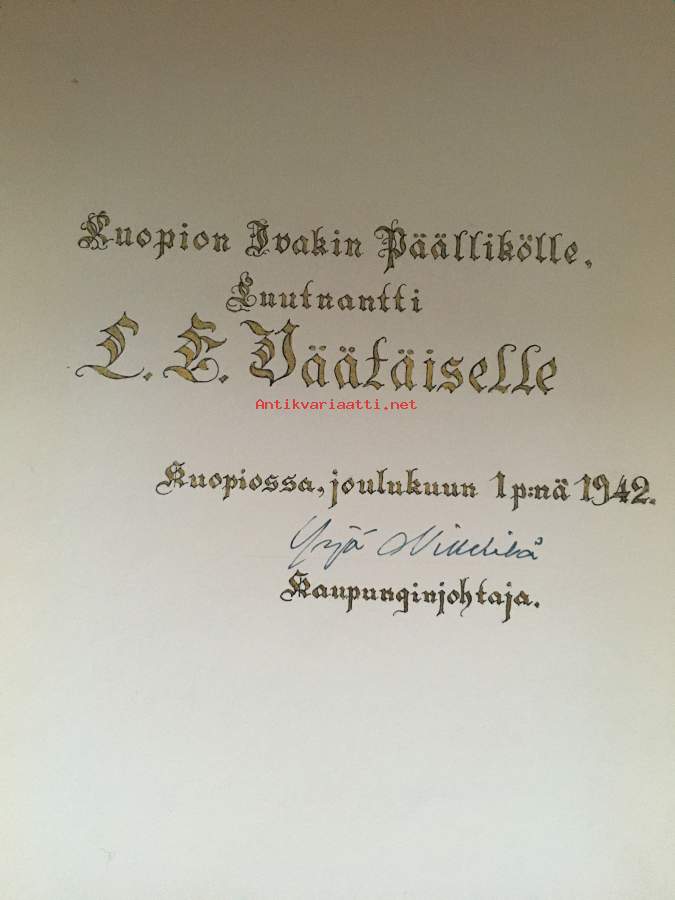 Kuopion Ivakin Päällikölle,
Luutnantti
L. E. Väätäiselle
Antikvariaatti.net
Kuopiossa, joulukuun 1 p:nä 1942.
Yrjö
Kaupunginjohtaja.